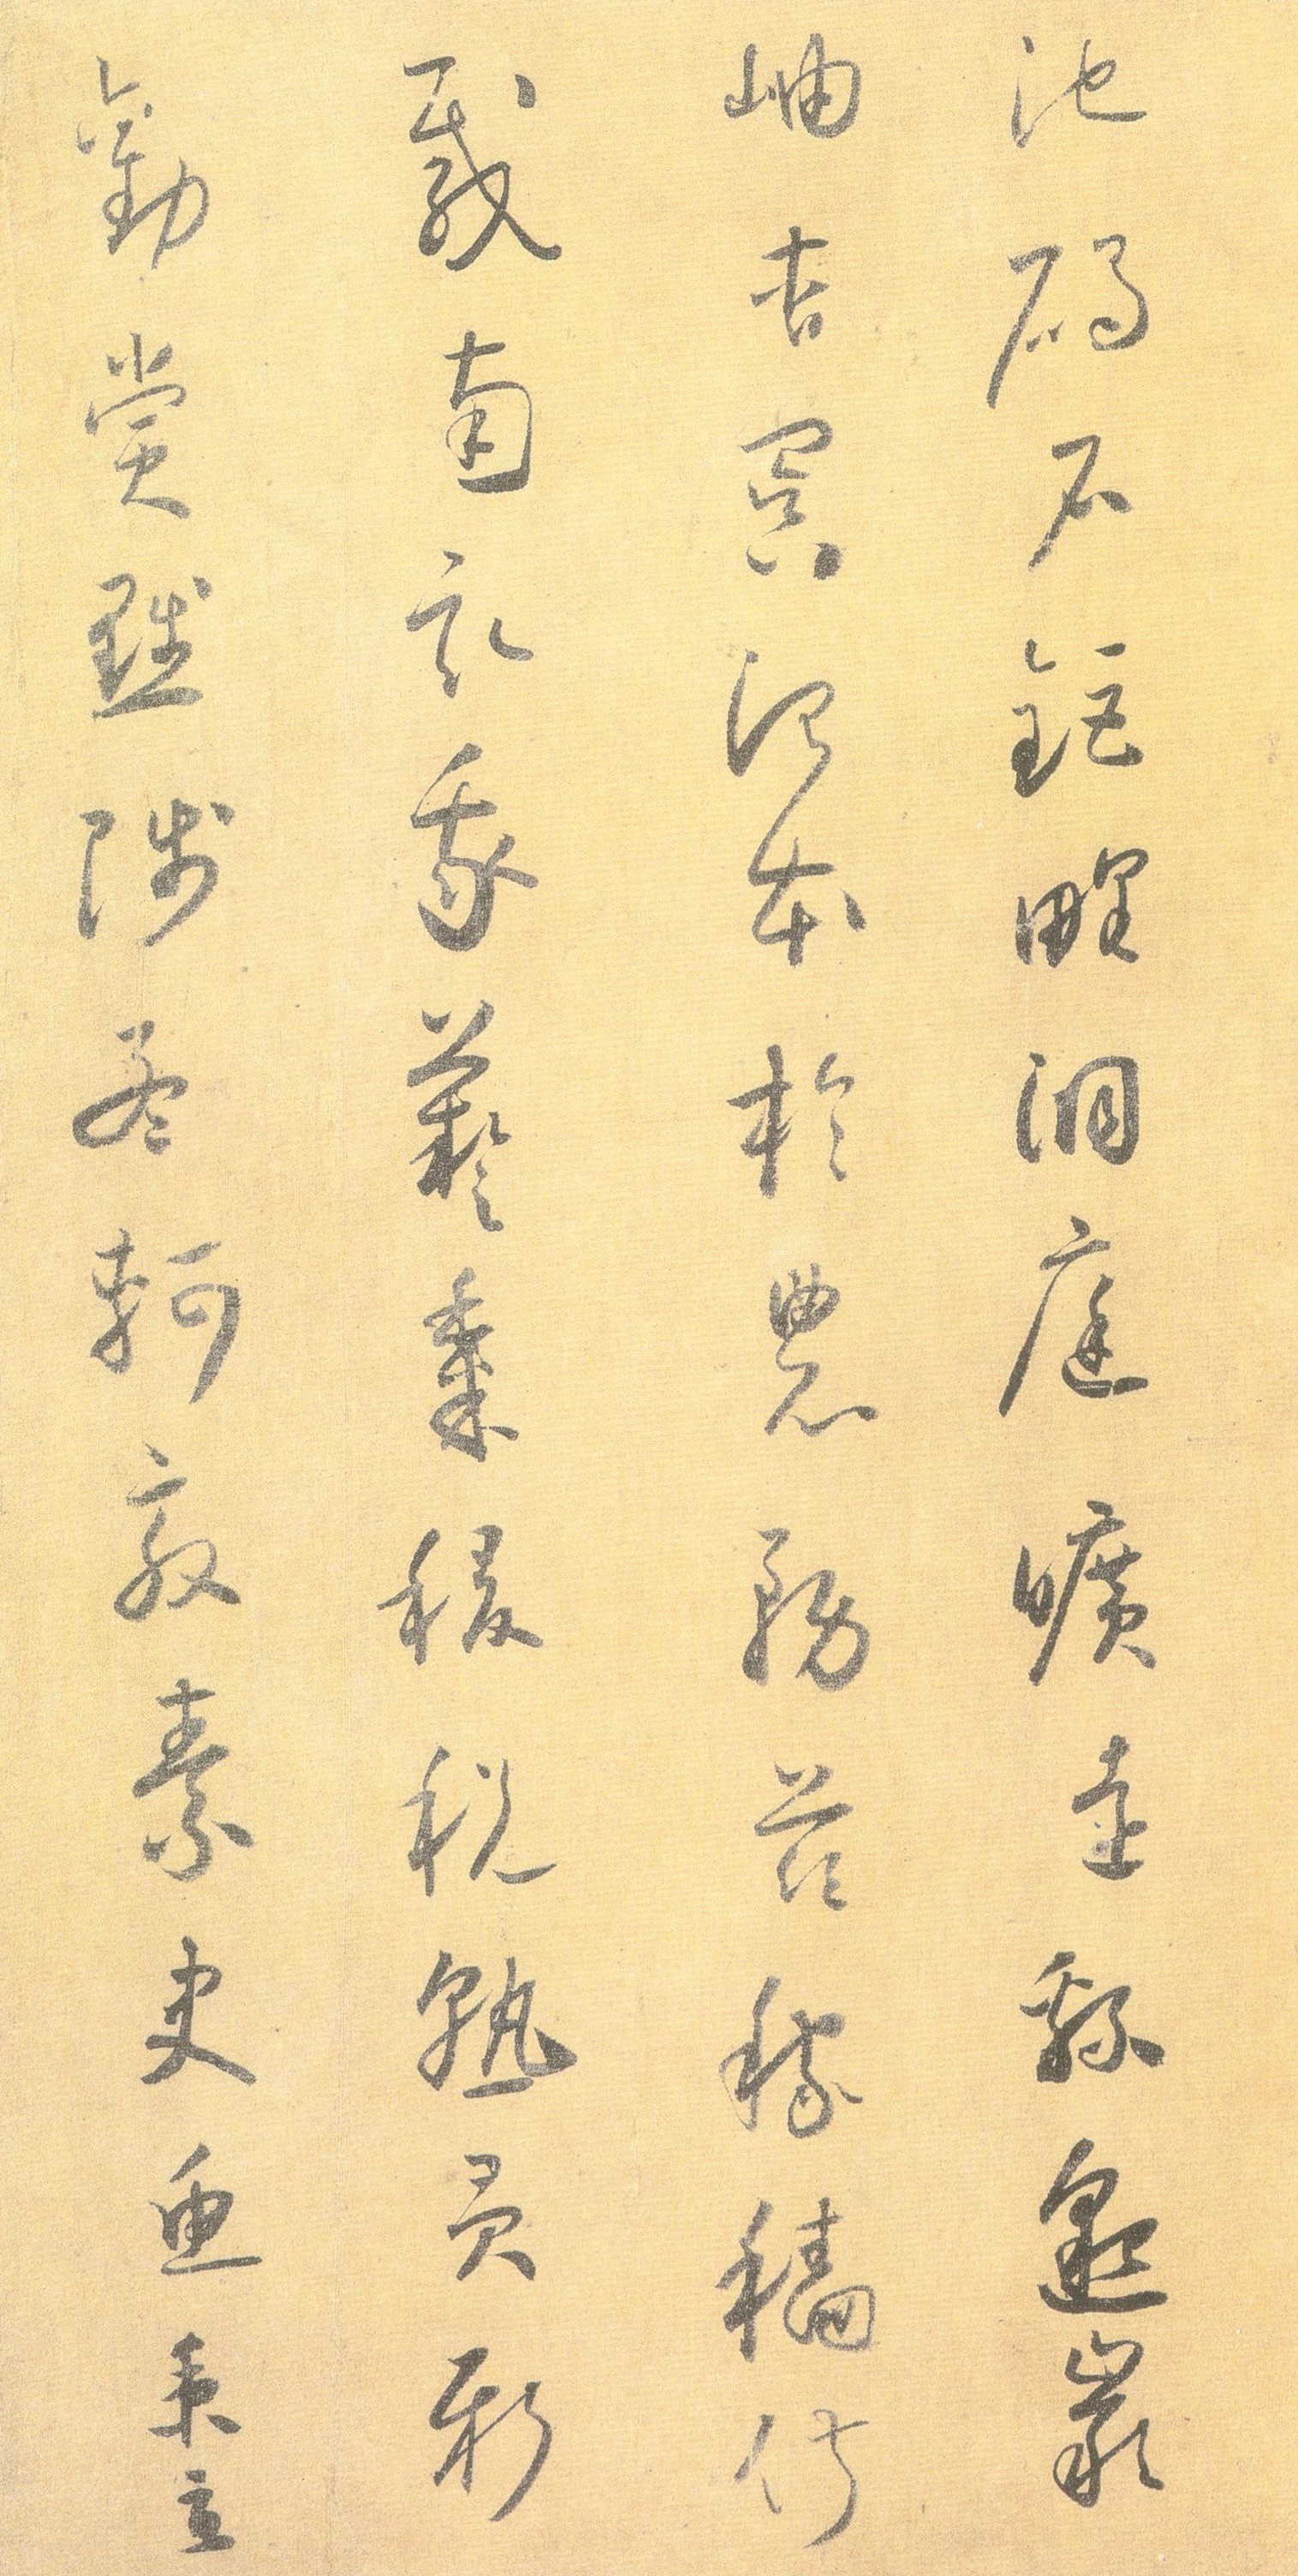 池碣石鉅野洞庭曠遠綿邈巖
岫杳冥治本於農務茲稼穡俶
載南畝我藝黍稷稅熟貢新
勸賞黜陟孟軻敦素史魚秉直